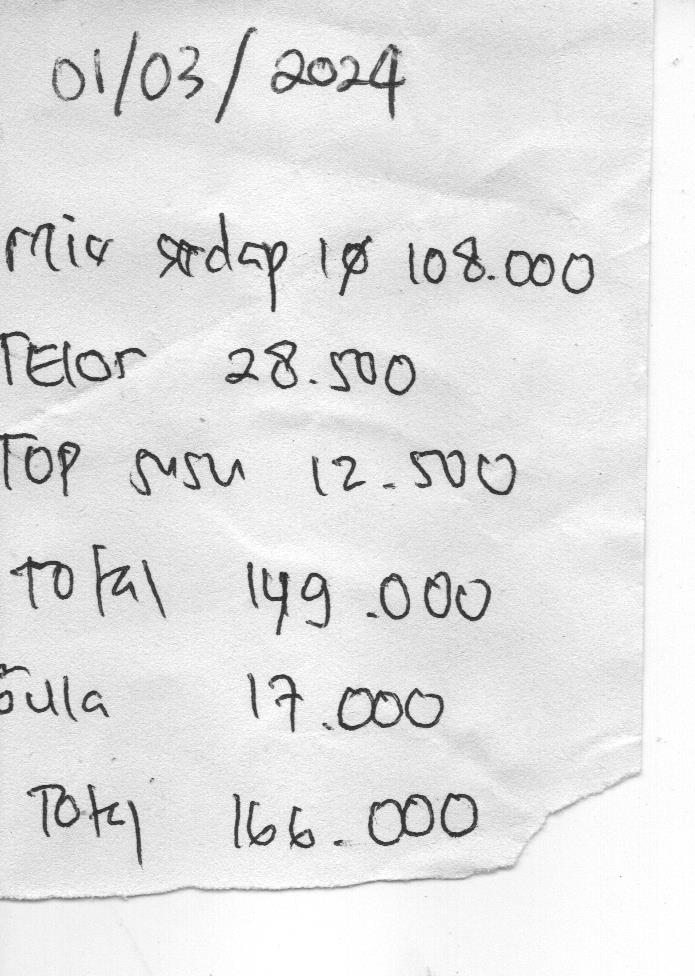 01/03/2024
mie sedap 10 108.000
TElor 28.500
TOP susu 12.500
Total 149.000
Gula 17.000
Total 166.000